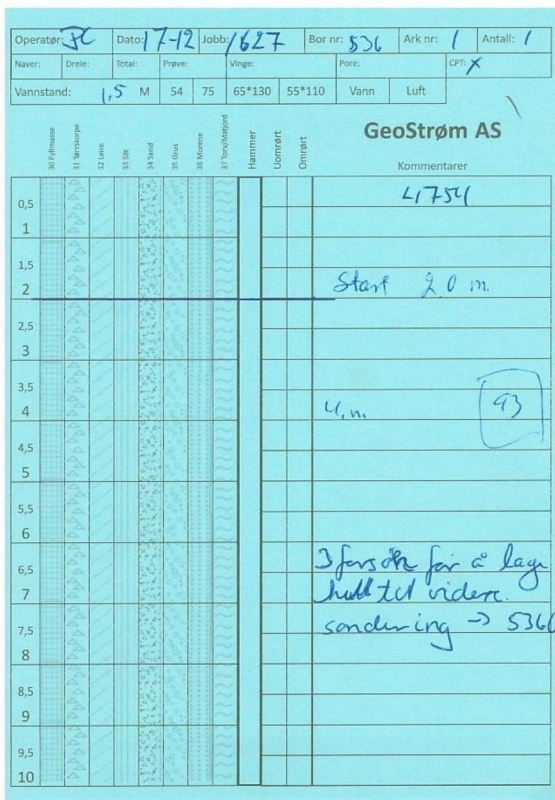 Operatør: JC Dato: 17-12 Jobb: 1627 Bor nr: 536 Ark nr: 1 Antall: 1
Naver: Dreie: Total: Prøve: Vinge: Pore: CPT: X
Vannstand: 1,5 M 54 75 65*130 55*110 Vann Luft
GeoStrøm AS
30 Fyllmasse
31 Tørrskorpe
32 Leire
33 Silt
34 Sand
35 Grus
36 Morene
37 Torv/Matjord
Hammer
Uomrørt
Omrørt
Kommentarer
4754
0,5
1
1,5
2 Start 2.0 m.
2,5
3
3,5
4 93
4,5
5
5,5
6
6,5 3 forsøk for å lage
7 hull tet videre.
7,5 sondering -> 536
8
8,5
9
9,5
10